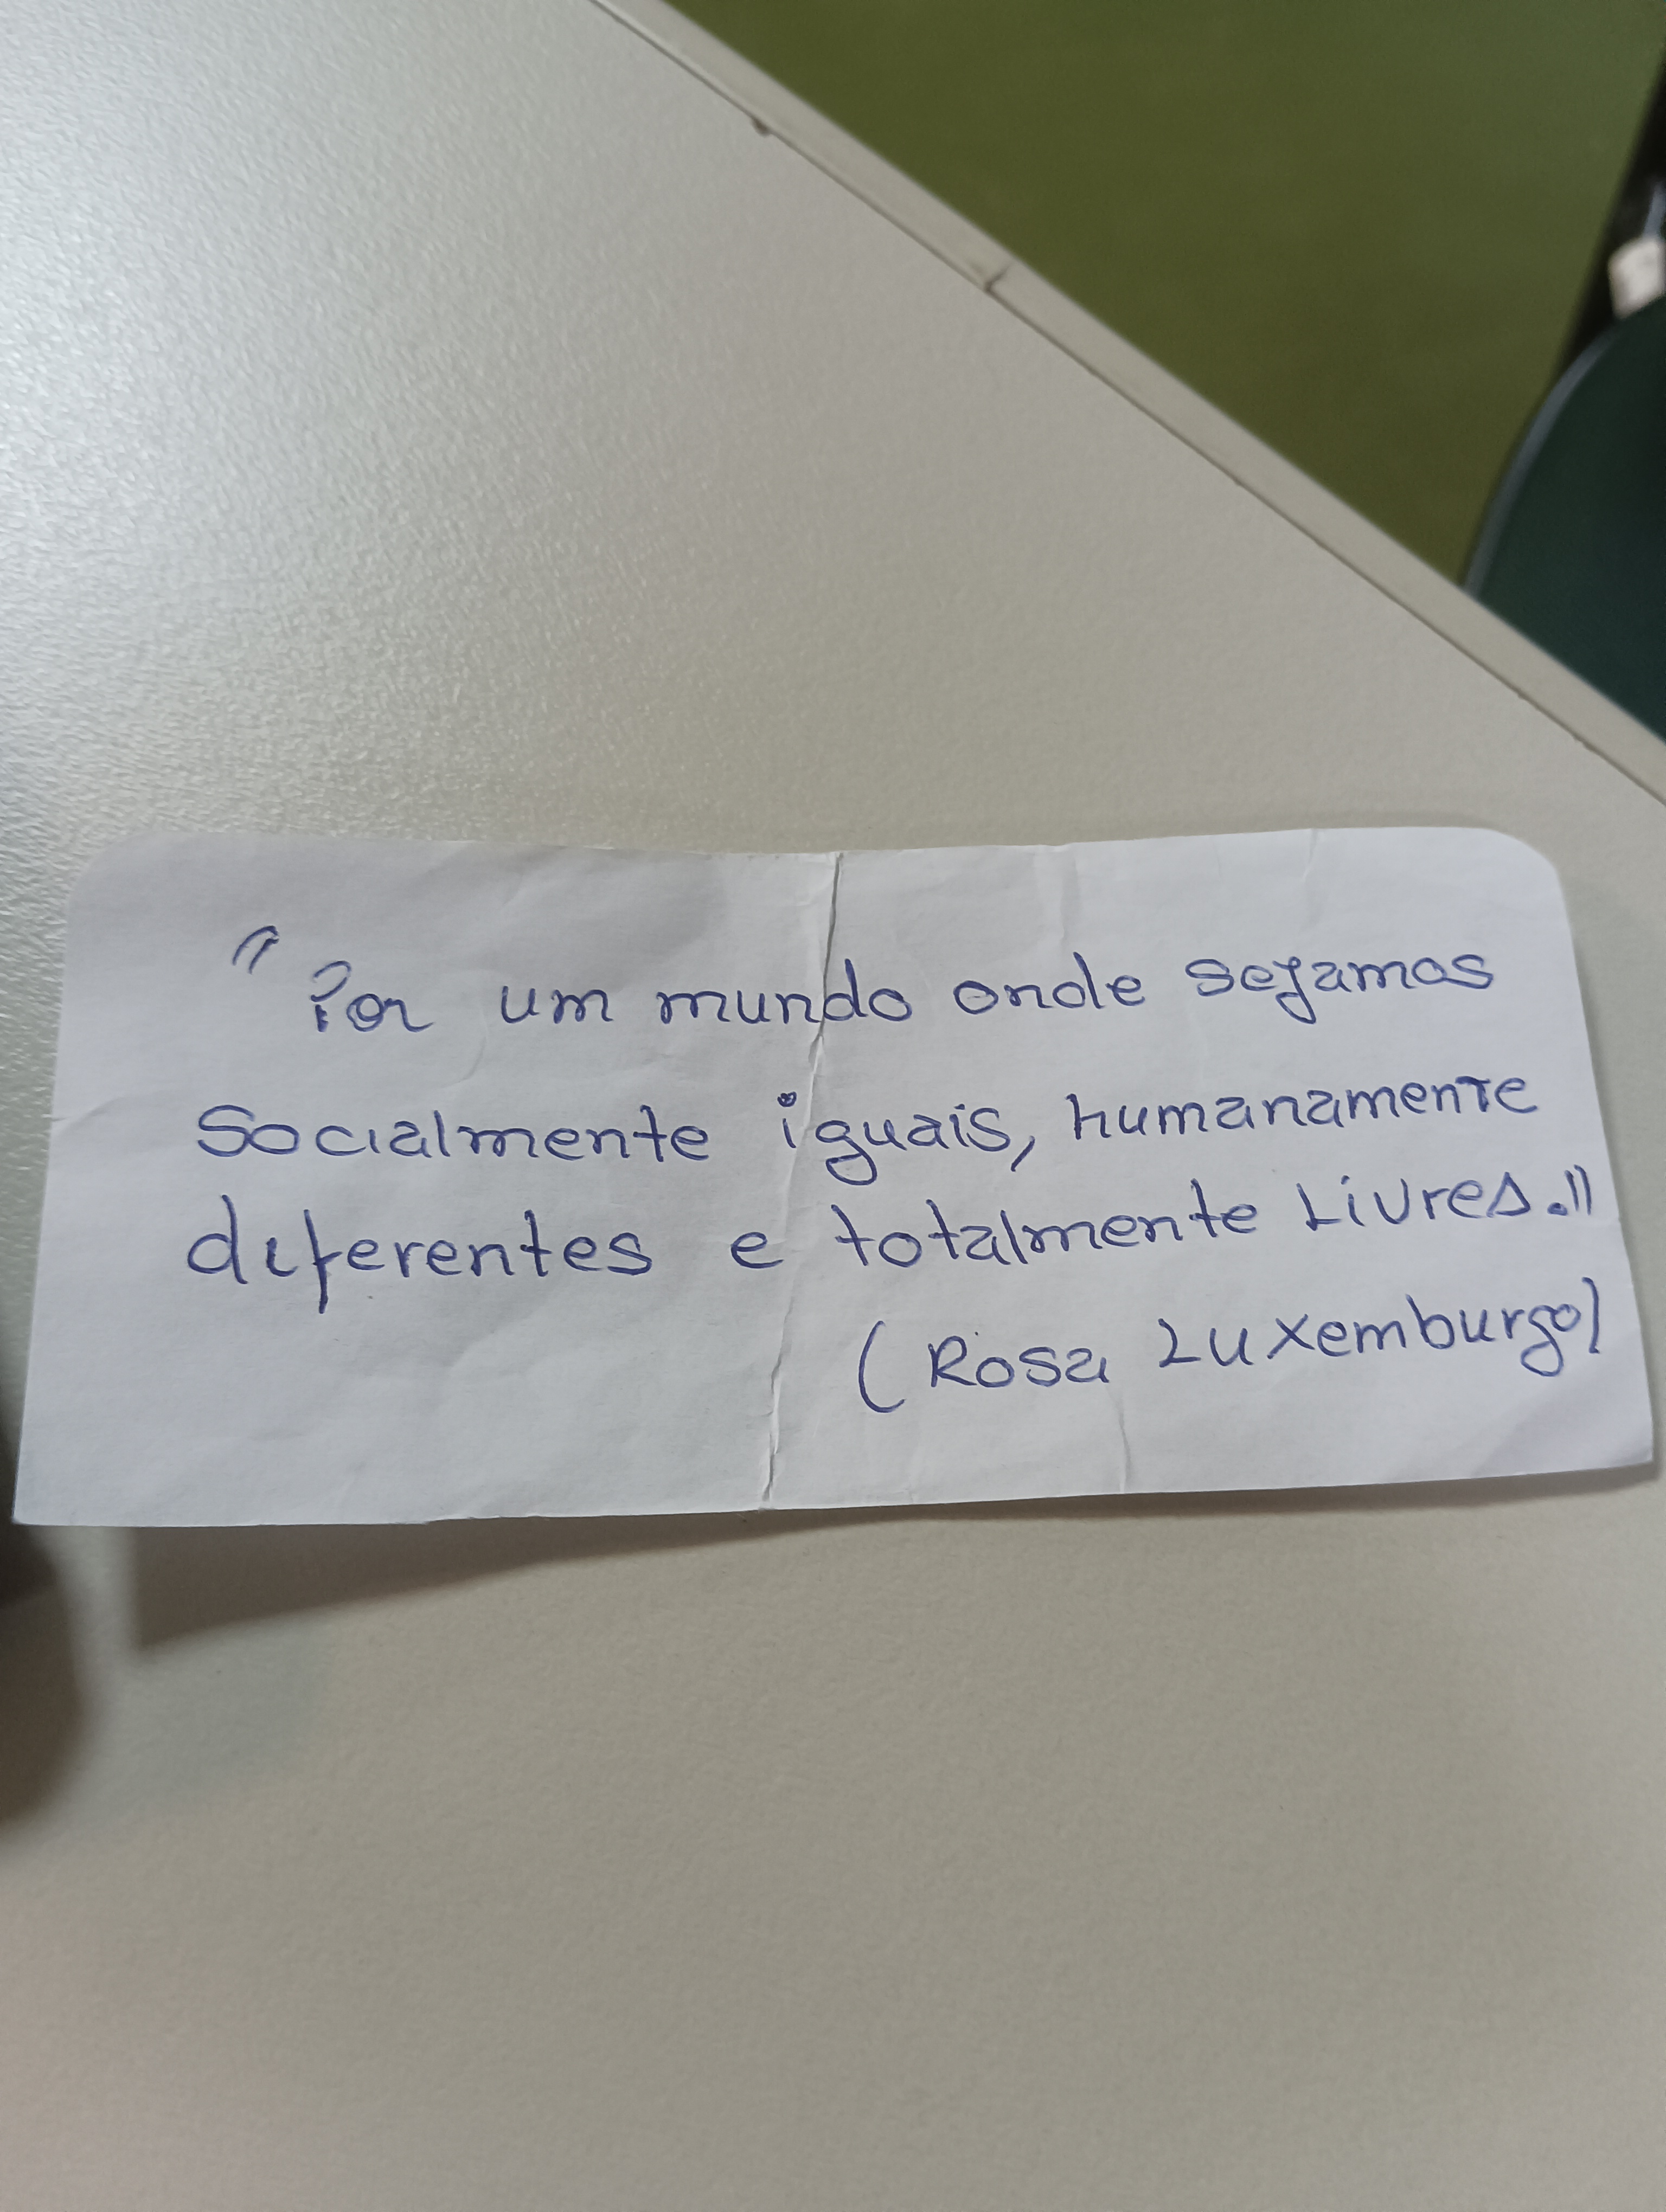 "Por um mundo onde sejamos
socialmente iguais, humanamente
diferentes e totalmente Livres."
(Rosa Luxemburgo)